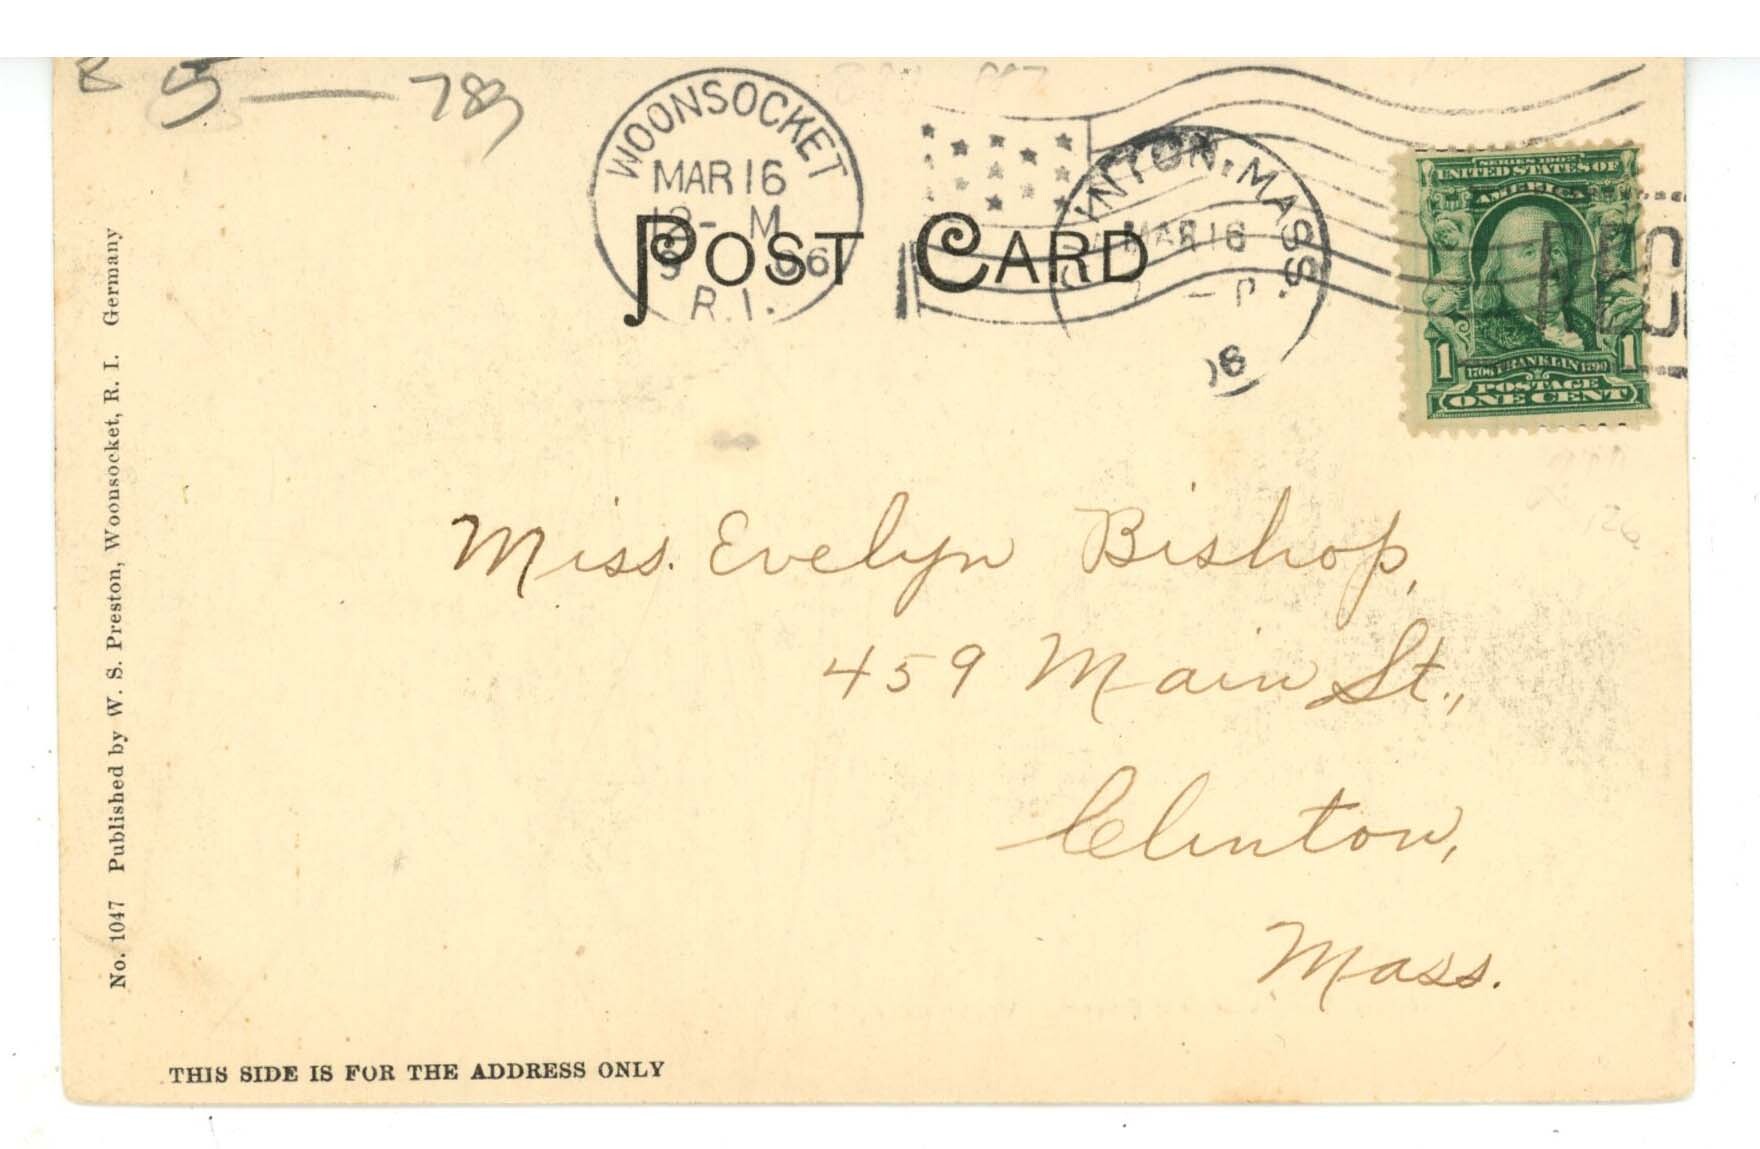 5 — 789
WOONSOCKET
MAR 16
12 - M
06
R. I.
CLINTON, MASS.
MAR 16
- P
06
POST CARD
SERIES 1902
UNITED STATES OF
AMERICA
1 1
1706 FRANKLIN 1790
POSTAGE
ONE CENT
Miss. Evelyn Bishop,
459 Main St.,
Clinton,
Mass.
No. 1047 Published by W. S. Preston, Woonsocket, R. I. Germany
THIS SIDE IS FOR THE ADDRESS ONLY